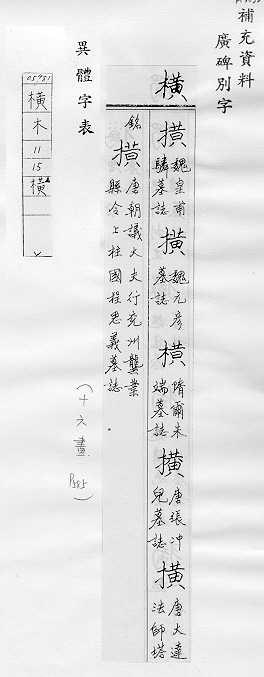 補充資料
廣碑別字
橫
撗 魏皇甫驎墓誌 撗 魏元彥墓誌 橫 隋爾朱端墓誌 撗 唐張冲兒墓誌 撗 唐大達法師塔
銘 撗 唐朝議大夫行兗州龔業縣令上柱國程思義墓誌。
(十六畫) P585
異體字表
05751
橫
木
11
15
橫